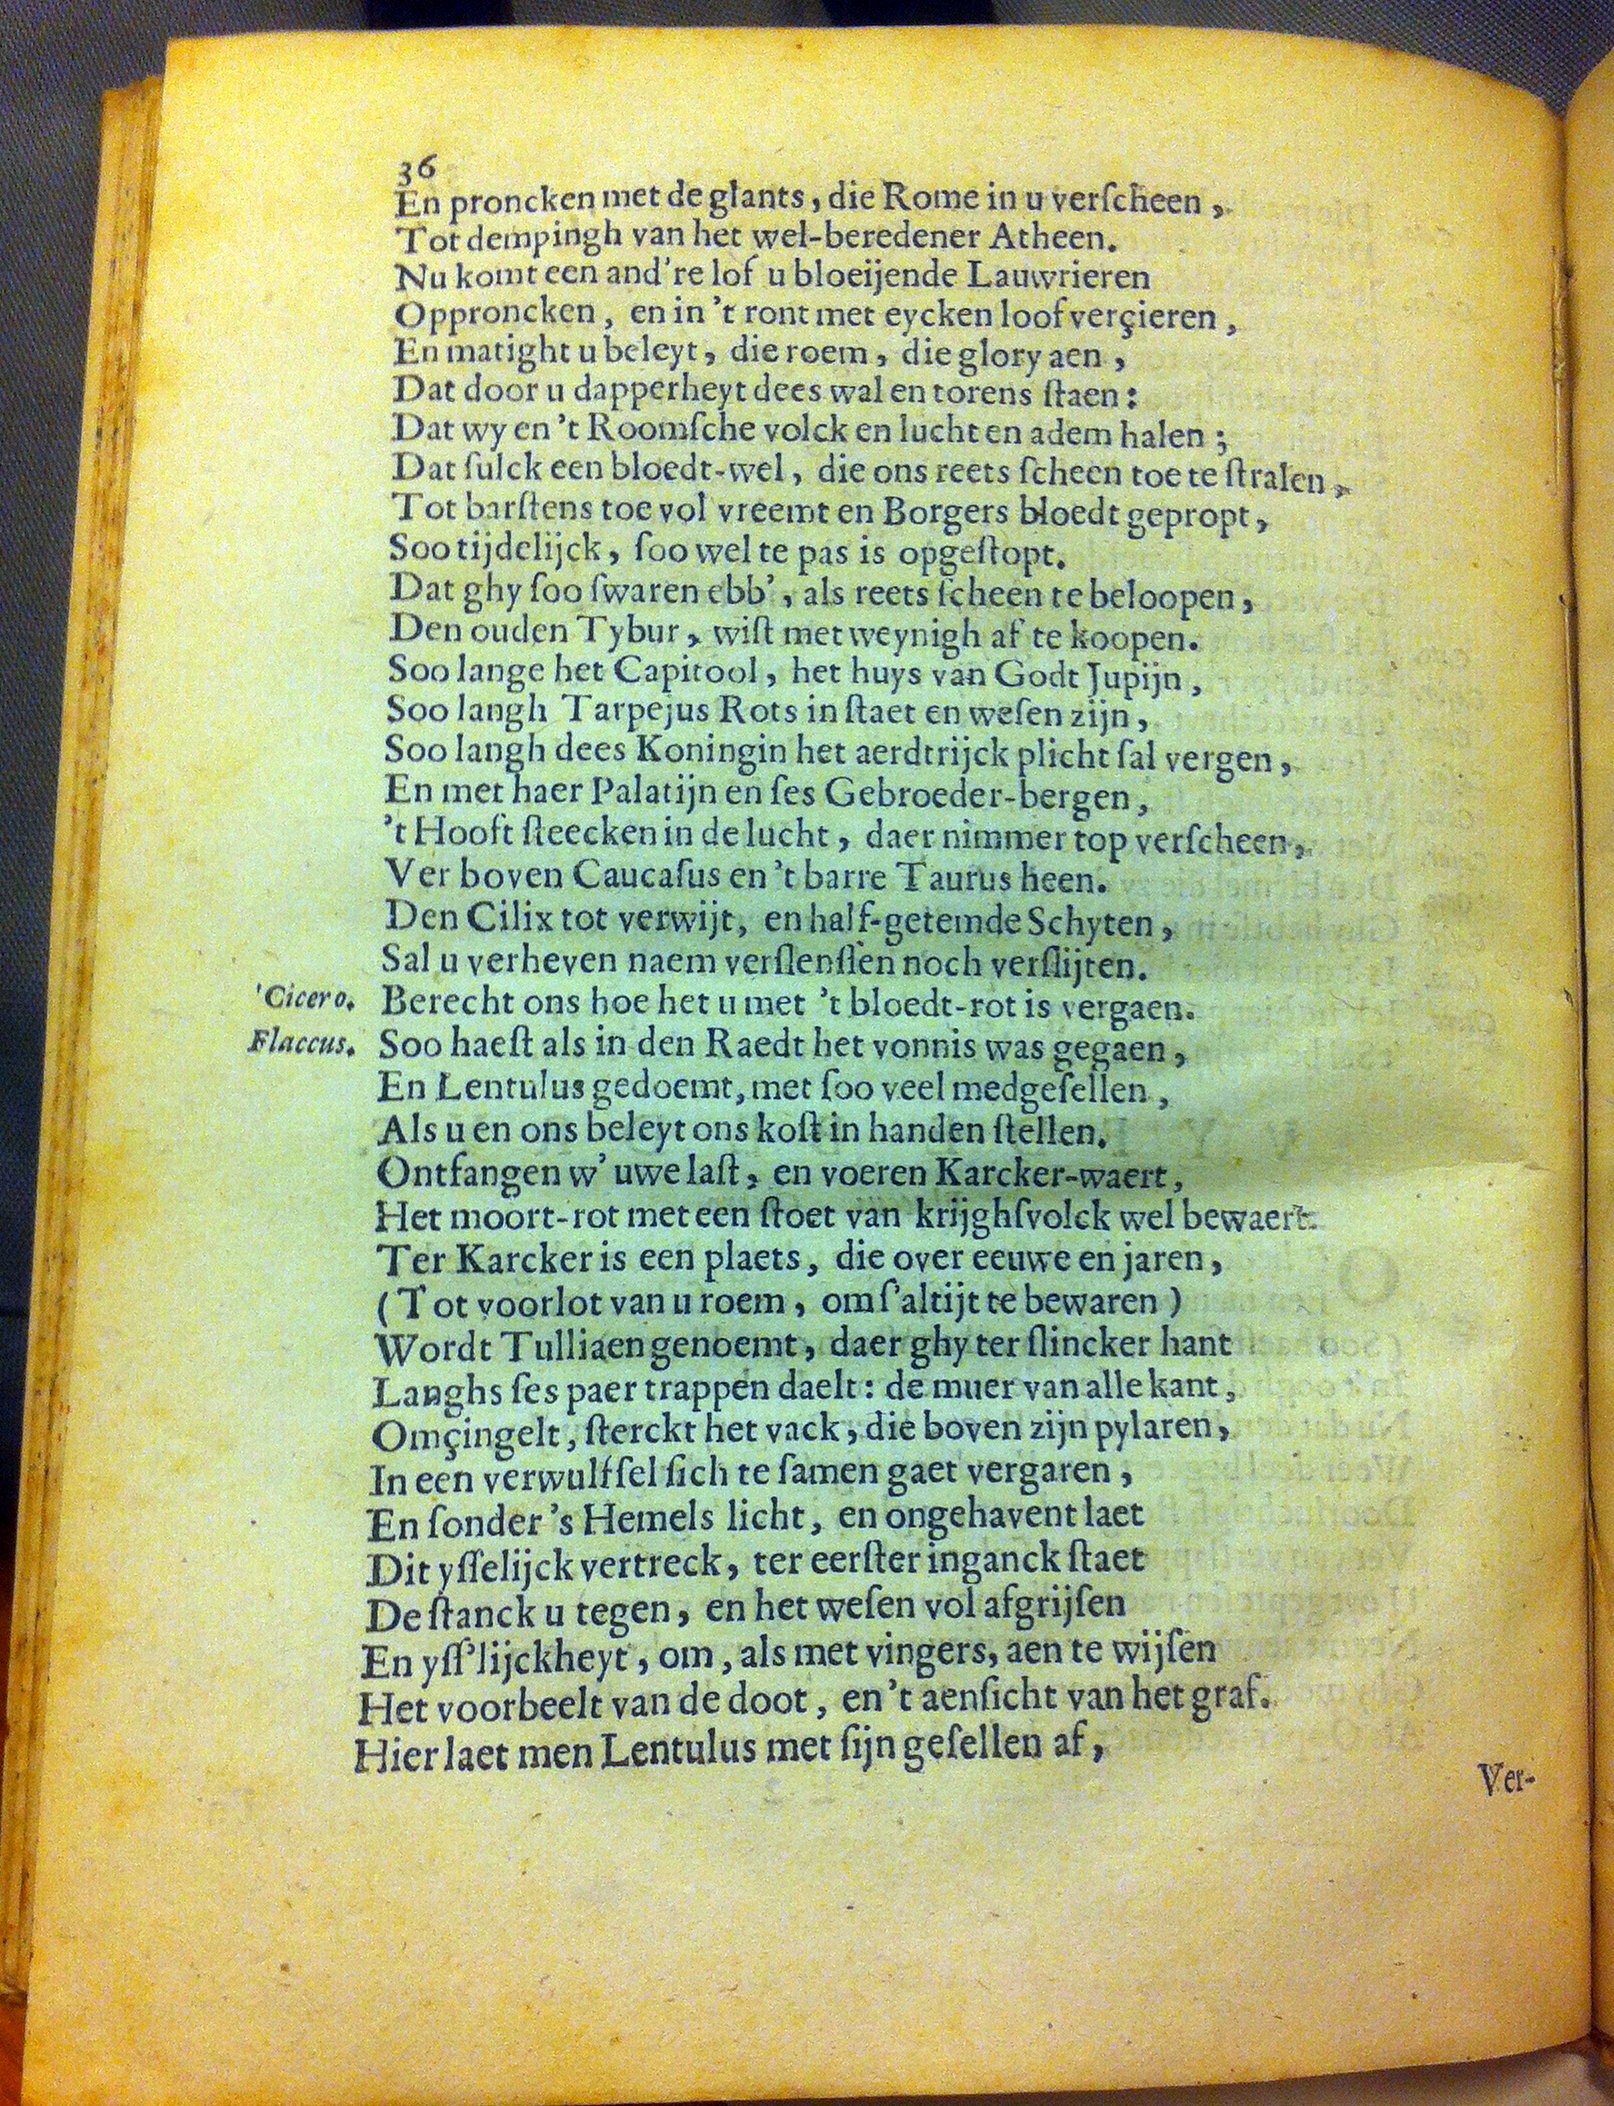 36
En proncken met de glants, die Rome in u verſcheen,
Tot dempingh van het wel-beredener Atheen.
Nu komt een and're lof u bloeijende Lauwrieren
Oppronckен, en in 't ront met eycken loof verçieren,
En matight u beleyt, die roem, die glory aen,
Dat door u dapperheyt dees wal en torens ſtaen:
Dat wy en 't Roomſche volck en lucht en adem halen;
Dat ſulck een bloedt-wel, die ons reets ſcheen toe te ſtralen,
Tot barſtens toe vol vreemt en Borgers bloedt gepropt,
Soo tijdelijck, ſoo wel te pas is opgeſtopt.
Dat ghy ſoo ſwaren ebb', als reets ſcheen te beloopen,
Den ouden Tybur, wiſt met weynigh af te koopen.
Soo lange het Capitool, het huys van Godt Jupijn,
Soo langh Tarpejus Rots in ſtaet en weſen zijn,
Soo langh dees Koningin het aerdtrijck plicht ſal vergen,
En met haer Palatijn en ſes Gebroeder-bergen,
't Hooft ſteecken in de lucht, daer nimmer top verſcheen,
Ver boven Caucaſus en 't barre Taurus heen.
Den Cilix tot verwijt, en half-getemde Schyten,
Sal u verheven naem verſlenſſen noch verſlijten.
'Cicero. Berecht ons hoe het u met 't bloedt-rot is vergaen.
Flaccus. Soo haeſt als in den Raedt het vonnis was gegaen,
En Lentulus gedoemt, met ſoo veel medgeſellen,
Als u en ons beleyt ons koſt in handen ſtellen.
Ontfangen w' uwe laſt, en voeren Karcker-waert,
Het moort-rot met een ſtoet van krijghſvolck wel bewaert.
Ter Karcker is een plaets, die over eeuwe en jaren,
(Tot voorlot van u roem, om ſ'altijt te bewaren)
Wordt Tulliaen genoemt, daer ghy ter ſlincker hant
Langhs ſes paer trappen daelt: de muer van alle kant,
Omçingelt, ſterckt het vack, die boven zijn pylaren,
In een verwulfſel ſich te ſamen gaet vergaren,
En ſonder 's Hemels licht, en ongehavent laet
Dit yſſelijck vertreck, ter eerſter inganck ſtaet
De ſtanck u tegen, en het weſen vol afgrijſen
En yſſ'lijckheyt, om, als met vingers, aen te wijſen
Het voorbeelt van de doot, en 't aenſicht van het graf.
Hier laet men Lentulus met ſijn geſellen af,
Ver-